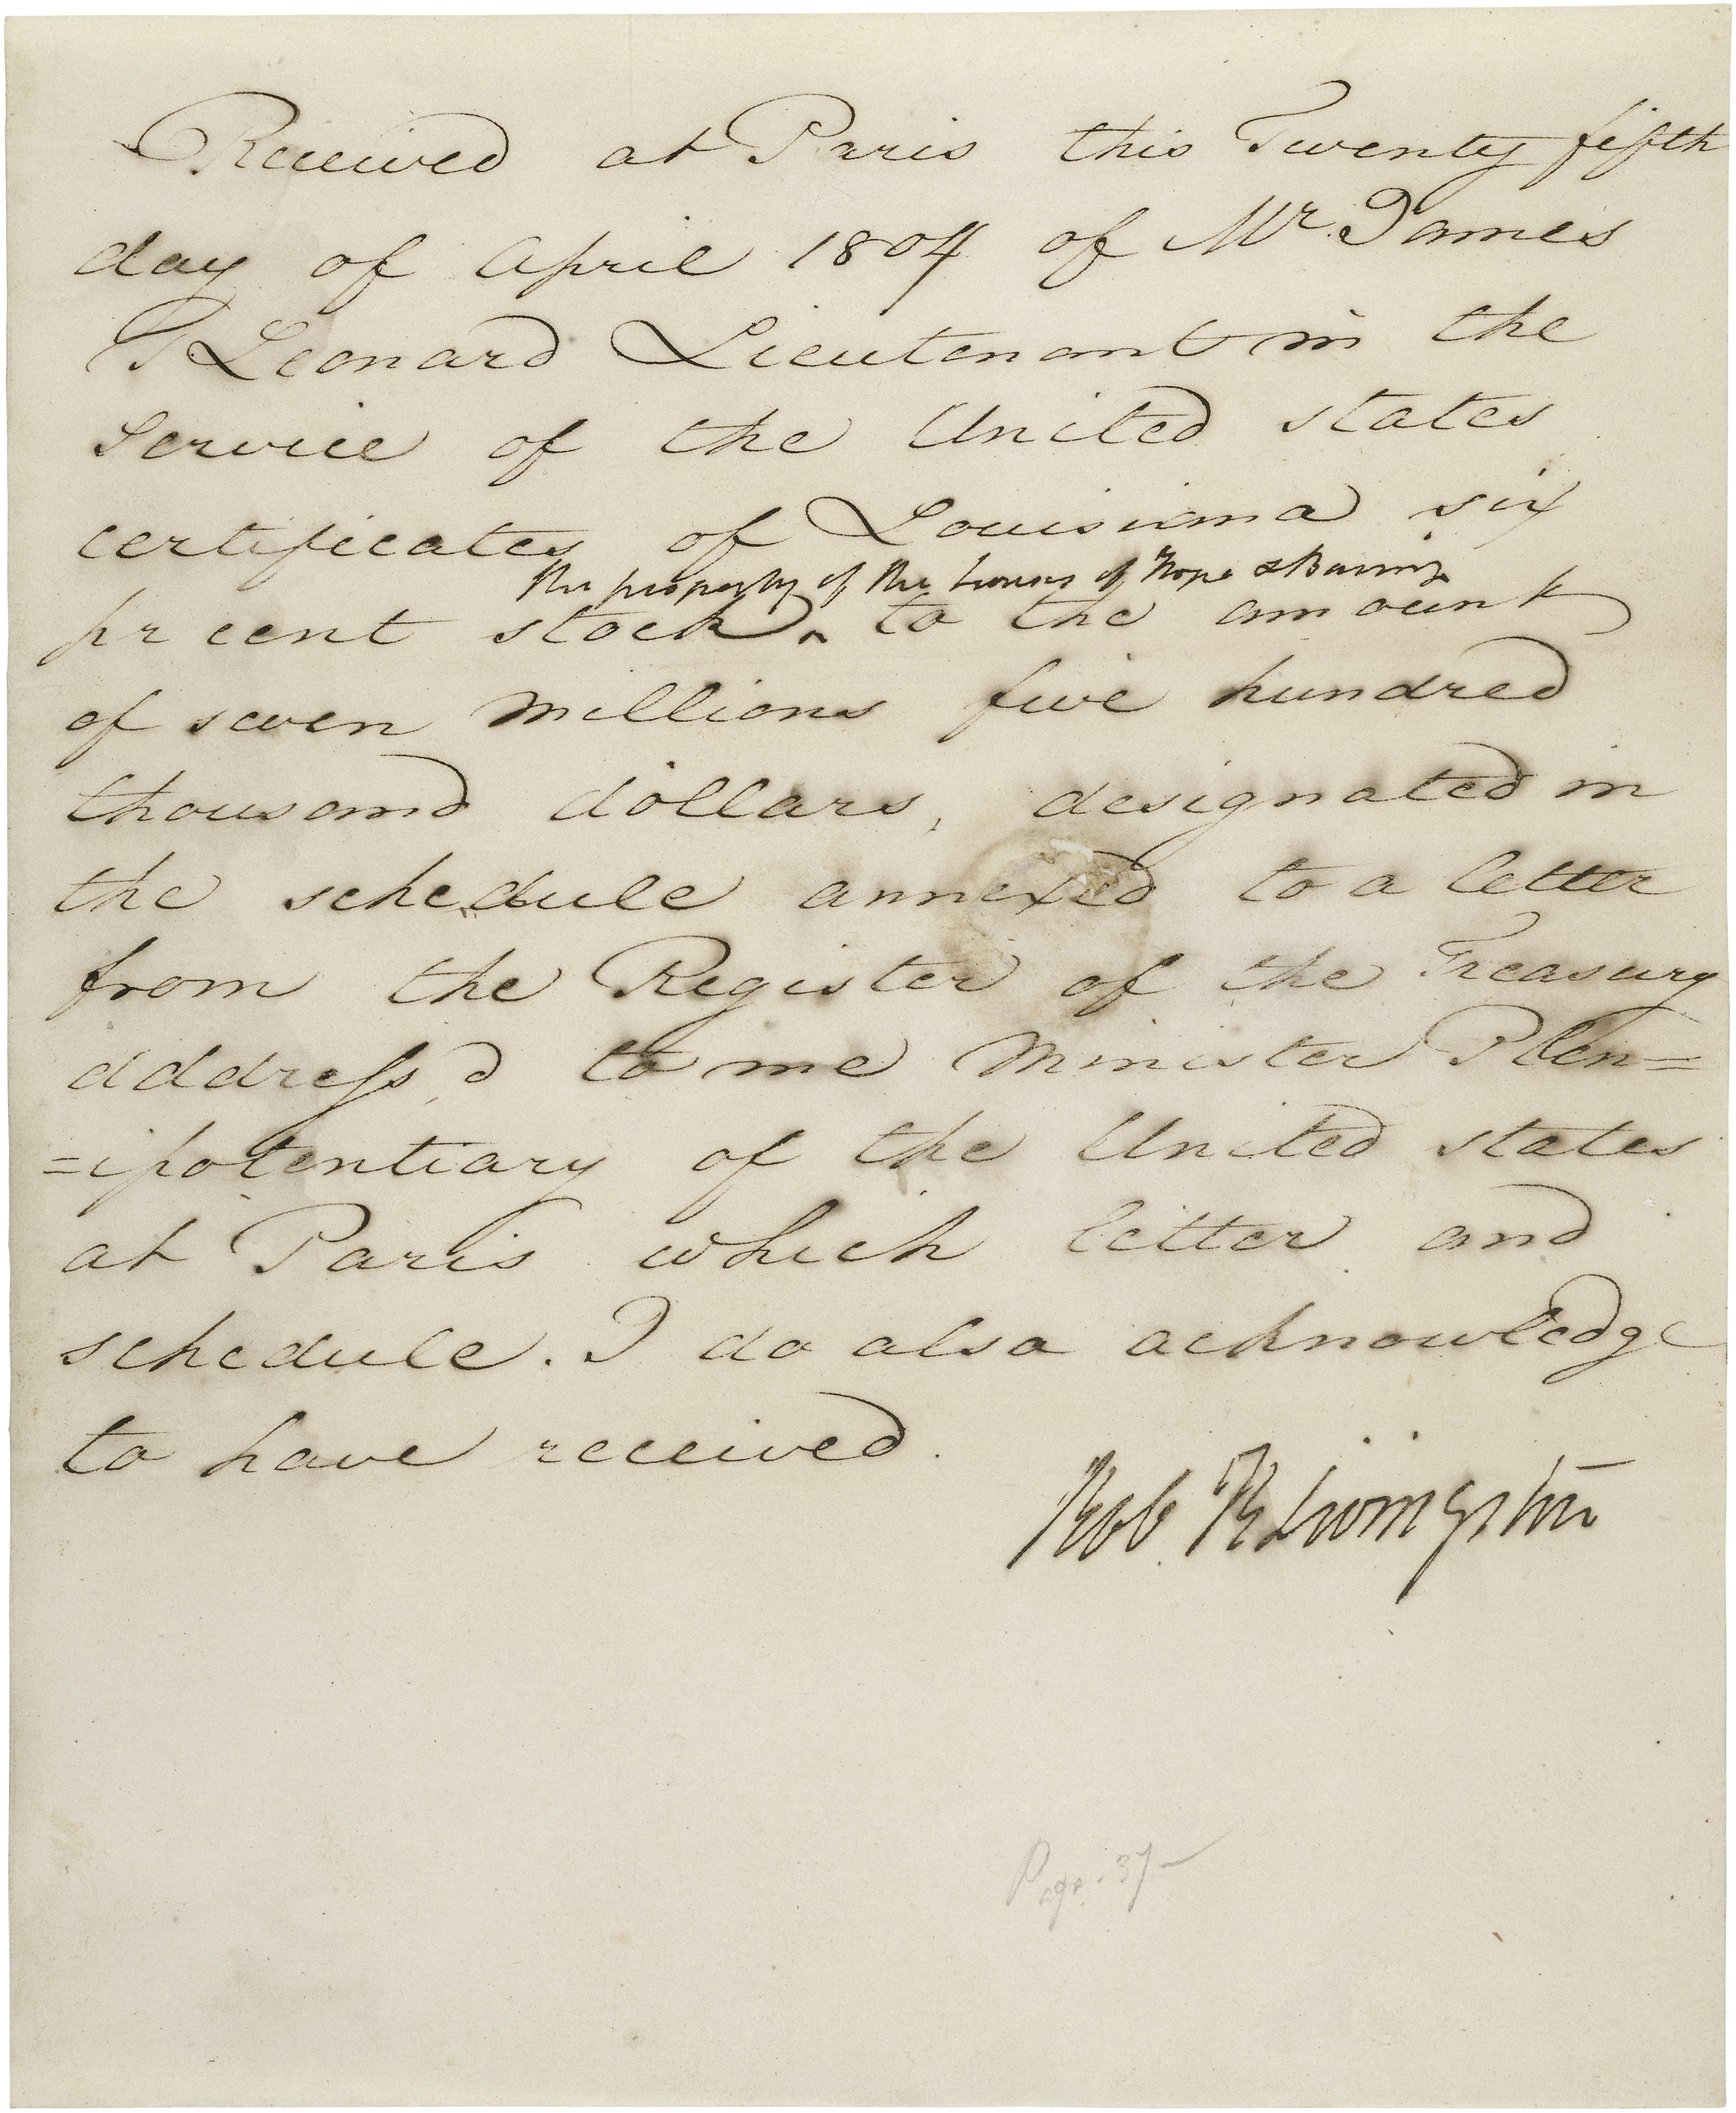 Received at Paris this Twenty fifth
day of April 1804 of Mr. James
T Leonard Lieutenant in the
Service of the United States
certificates of Louisiana six
the property of the houses of Hope & Baring
pr cent stock ^ to the amount
of seven millions five hundred
thousand dollars, designated in
the schedule annexed to a letter
from the Register of the Treasury
address'd to me Minister Plen=
=ipotentiary of the United States
at Paris which letter and
schedule. I do also acknowledge
to have received.
Rob R Livingston
Page. 37-